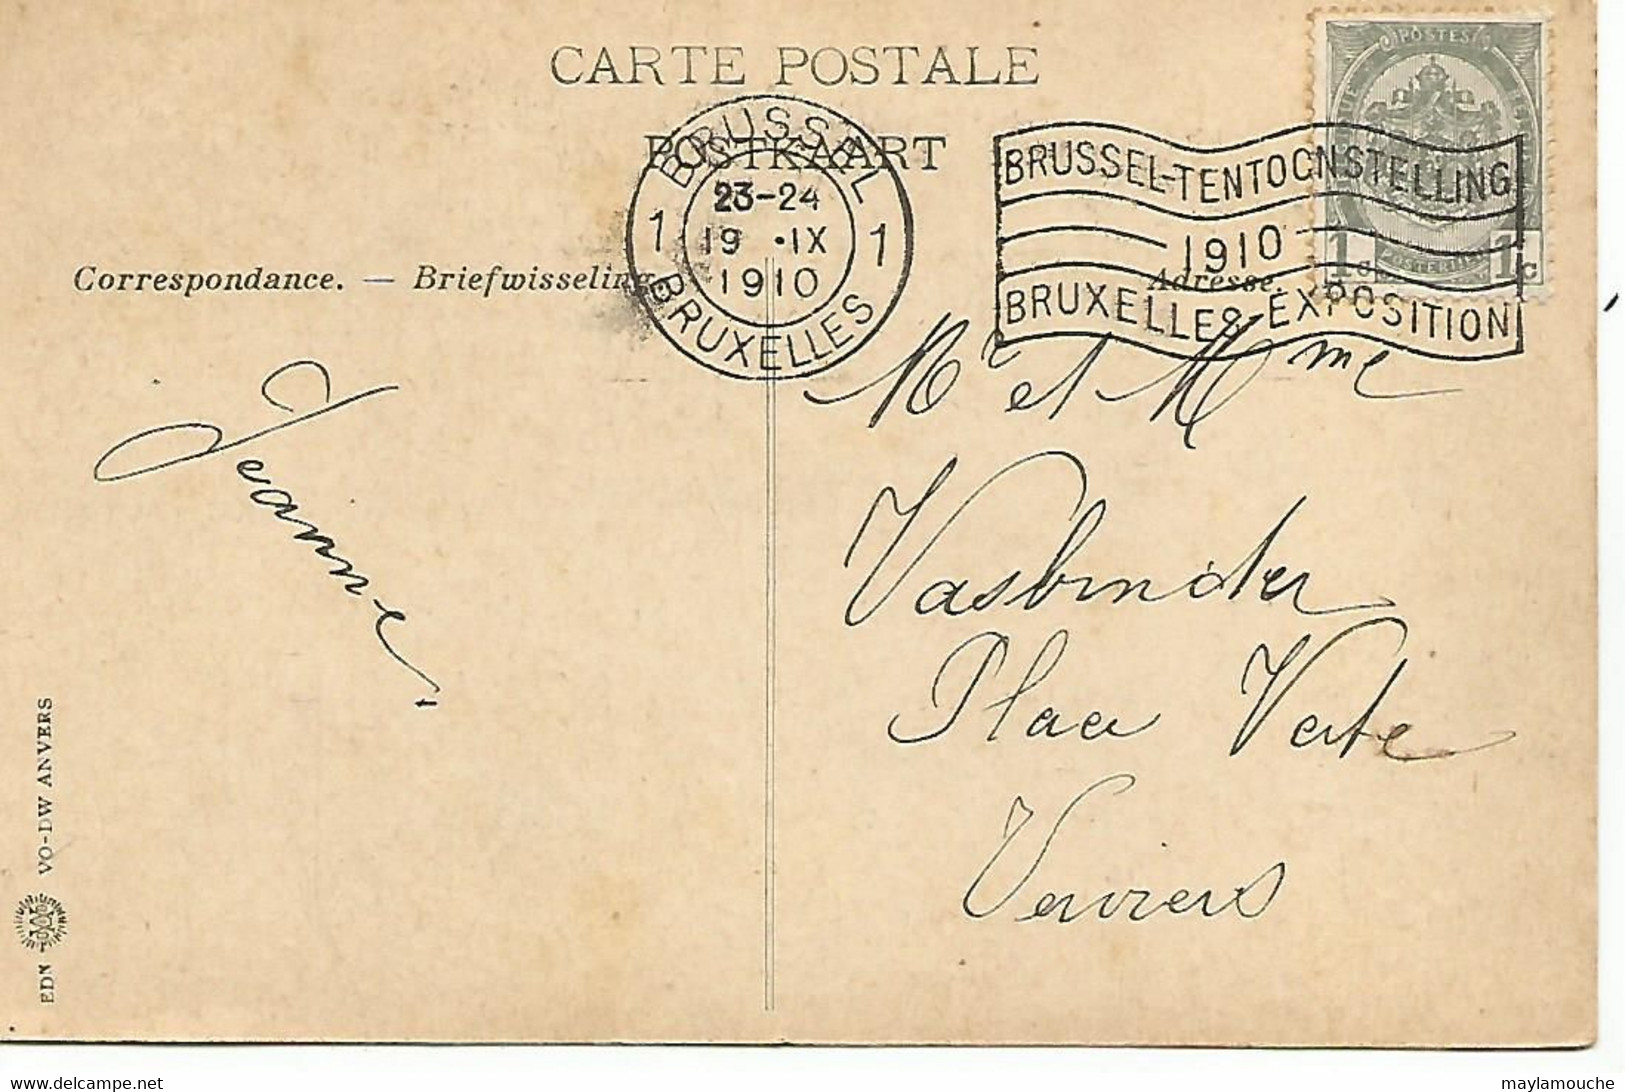 CARTE POSTALE
POSTKAART
BRUSSEL
23-24
1 19 •IX 1
1910
BRUXELLES
BRUSSEL-TENTOONSTELLING
1910
BRUXELLES-EXPOSITION
POSTES
1c 1c
Correspondance. — Briefwisseling.
Adresse.
Jeanne.
Mr et Mme
Vasbinder
Place Verte
Verviers
EDN VO-DW ANVERS
maylamouche